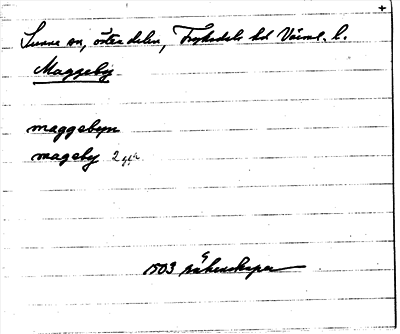 +
Sunne sn, östra delen, Fryksdals hd Värml. l.
Maggeby
maggebyn
mageby 2 ggr
1503 räkenskaper